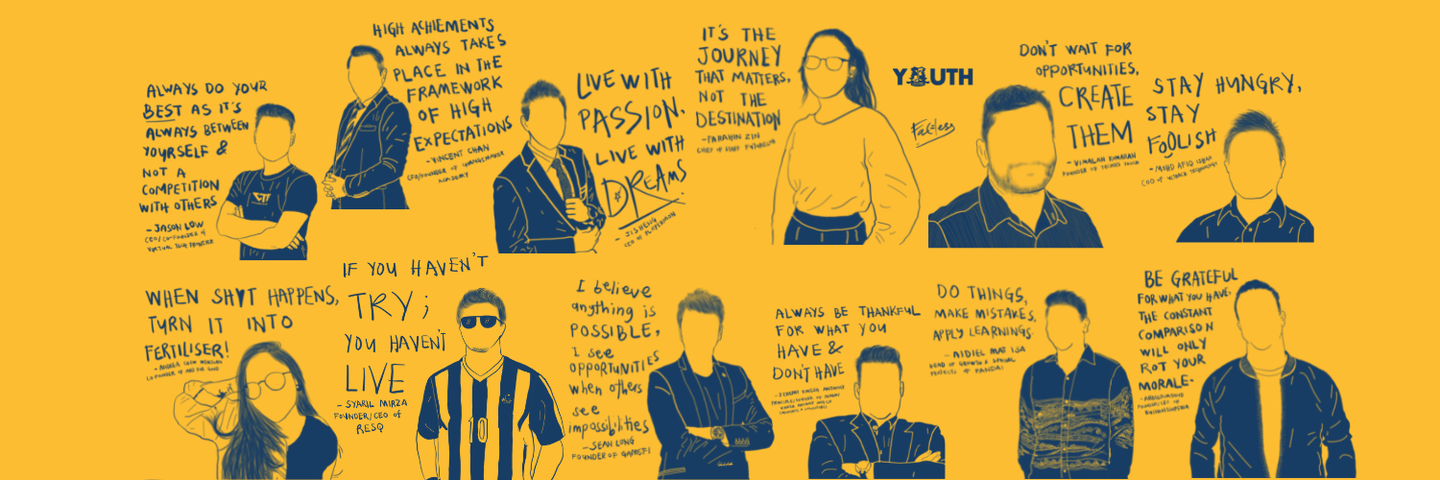 ALWAYS DO YOUR
BEST AS IT'S
ALWAYS BETWEEN
YOURSELF &
NOT A
COMPETITION
WITH OTHERS
- JASON LOW
CEO/CO-FOUNDER of
HIGH ACHIEMENTS
ALWAYS TAKES
PLACE IN THE
FRAMEWORK
OF HIGH
EXPECTATIONS
- VINCENT CHAN
CEO/FOUNDER OF
ACADEMY
LIVE WITH
PASSION.
LIVE WITH
DREAMS
- JISHENG
CEO OF
IT'S THE
JOURNEY
THAT MATTERS,
NOT THE
DESTINATION
YOUTH
Faceless
DON'T WAIT FOR
OPPORTUNITIES,
CREATE
THEM
- VIMALAN
FOUNDER OF
STAY HUNGRY,
STAY
FOOLISH
WHEN SHYT HAPPENS,
TURN IT INTO
FERTILISER!
IF YOU HAVEN'T
TRY;
YOU HAVEN'T
LIVE
- SYARIL MIRZA
FOUNDER/CEO of
RESQ
10
I believe
anything is
POSSIBLE,
I see
OPPORTUNITIES
when others
see
impossibilities
- SEAN LUNG
FOUNDER OF
ALWAYS BE THANKFUL
FOR WHAT YOU
HAVE &
DON'T HAVE
DO THINGS,
MAKE MISTAKES,
APPLY LEARNINGS.
- AIDIEL MAT ISA
HEAD OF GROWTH & SPECIAL
PROJECTS OF
BE GRATEFUL
FOR WHAT YOU HAVE.
THE CONSTANT
COMPARISON
WILL ONLY
ROT YOUR
MORALE-